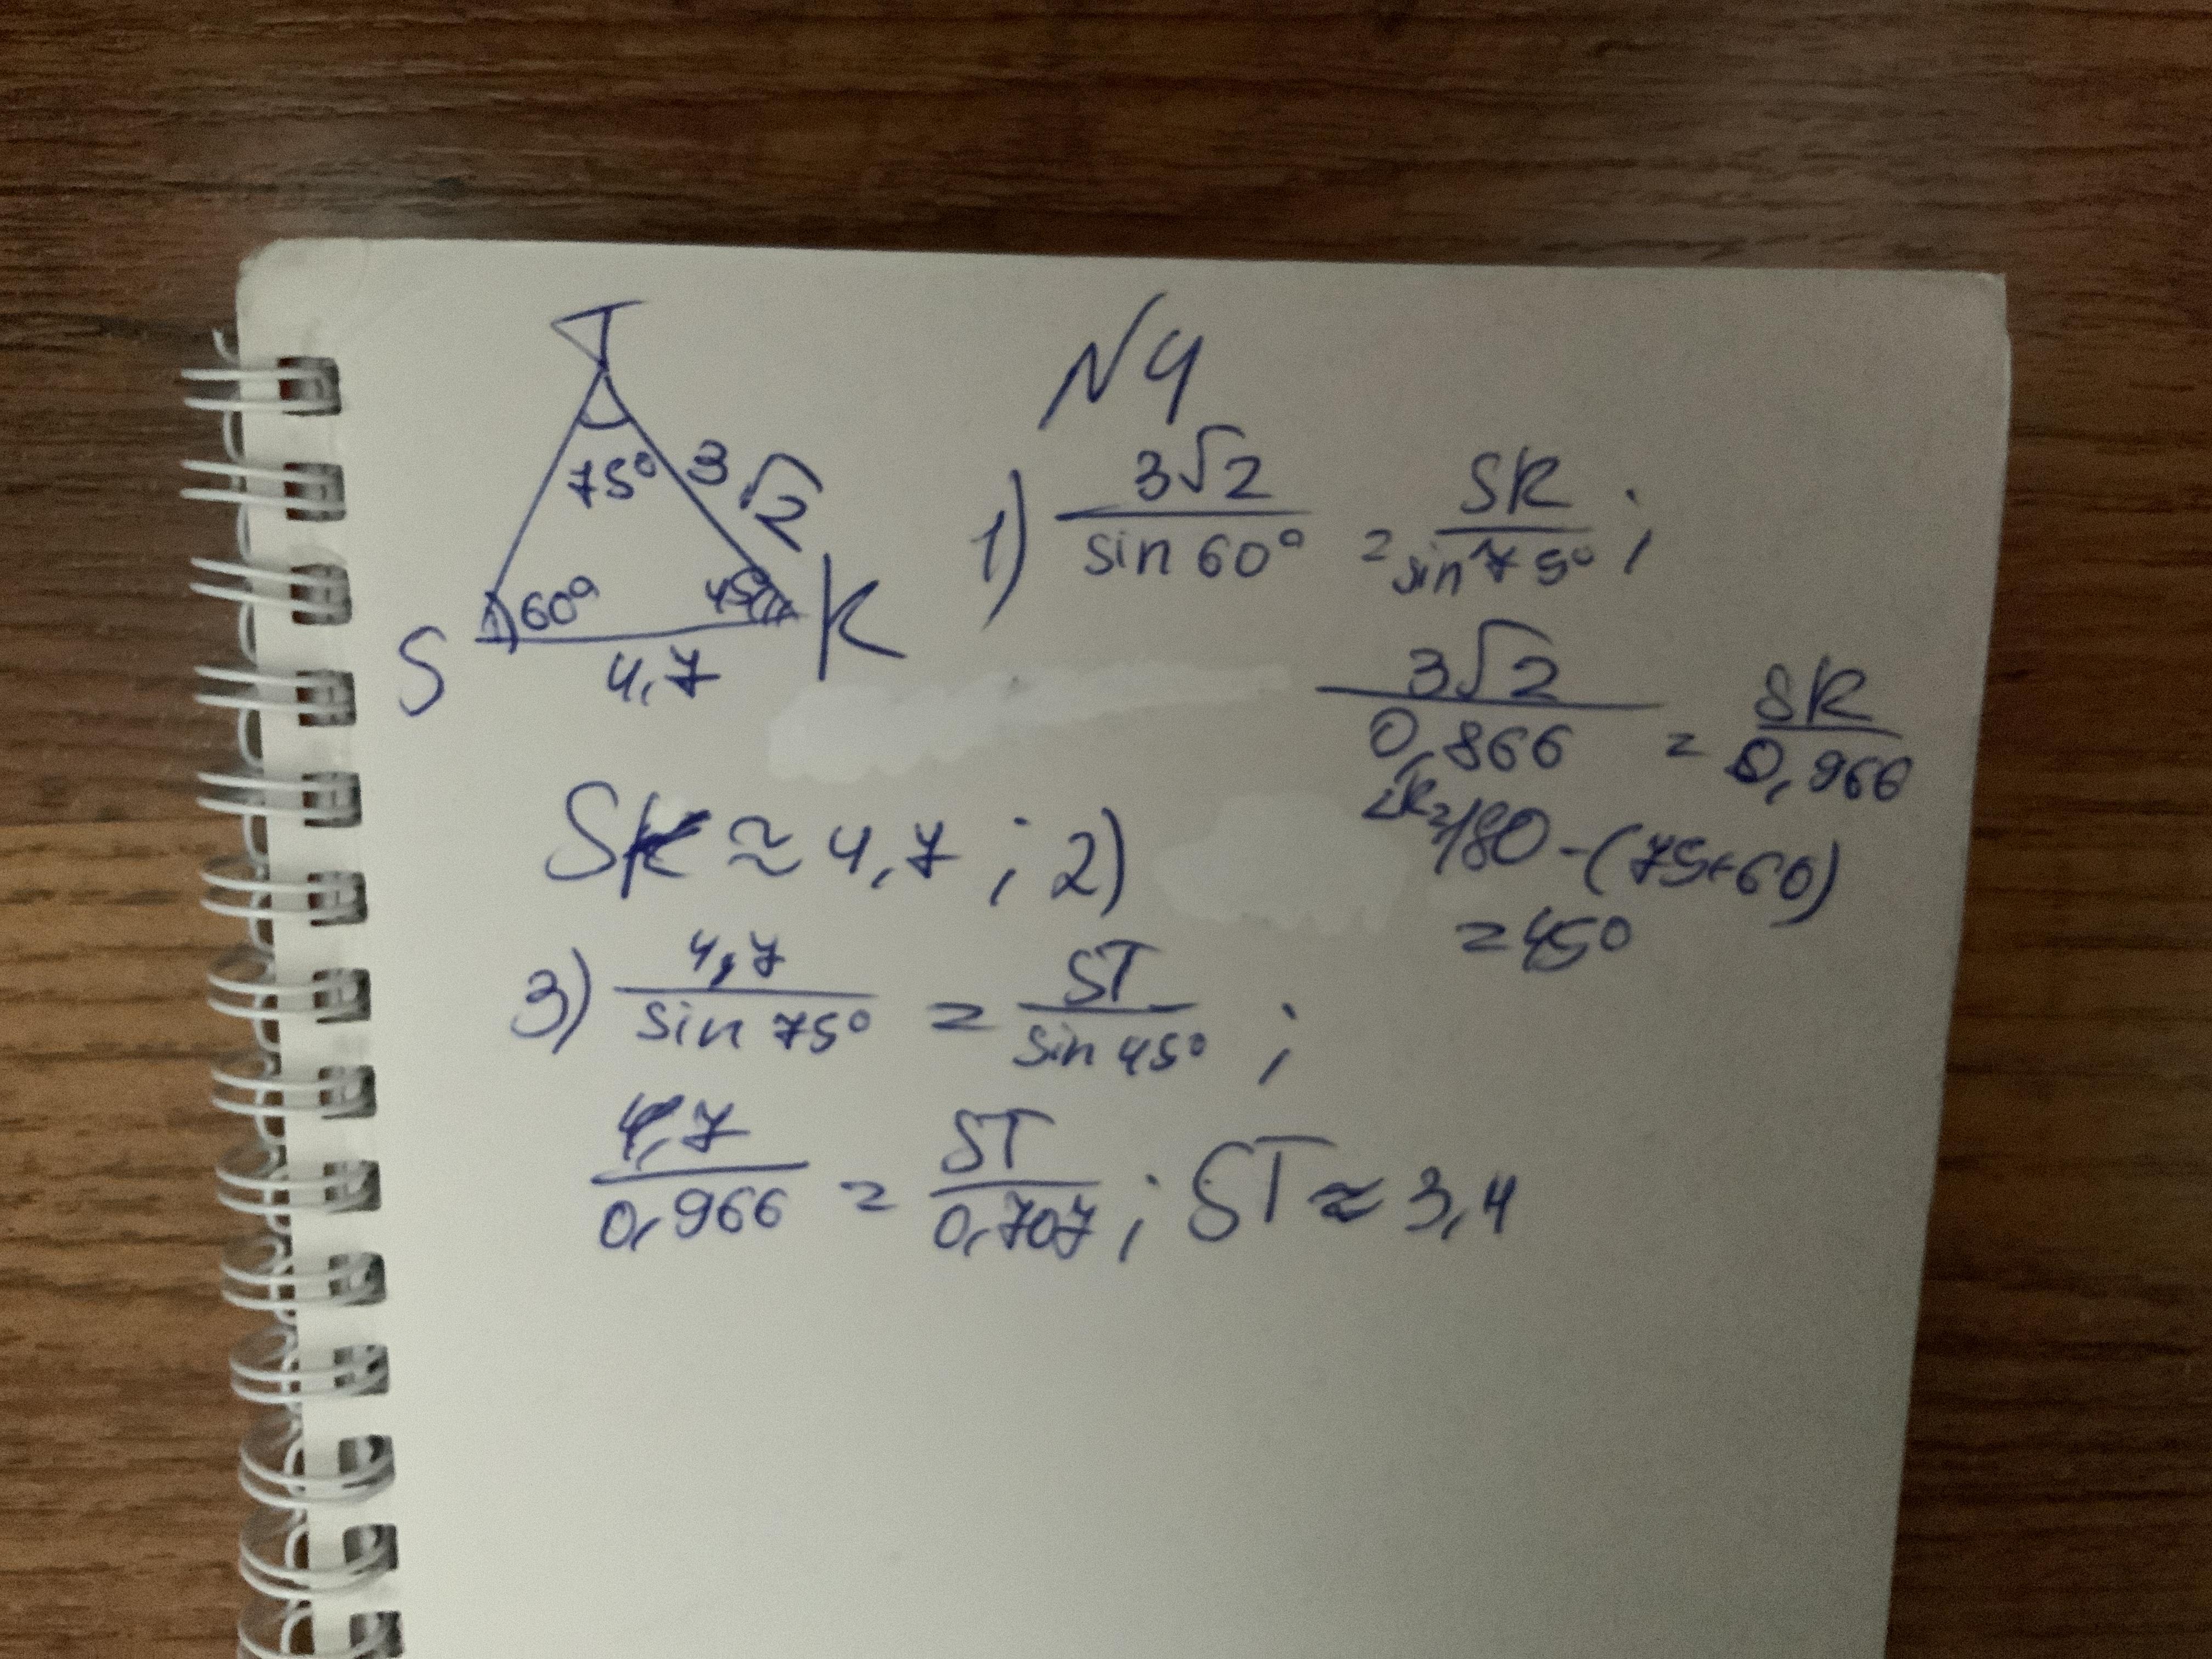 N4
T
75°
3√2
60°
45°
S
K
4,7
1) 3√2 / sin 60° = SK / sin 75° ;
3√2 / 0,866 = SK / 0,966
SK ≈ 4,7 ; 2)
180 - (75+60)
= 45°
3) 4,7 / sin 75° = ST / sin 45° ;
4,7 / 0,966 = ST / 0,707 ; ST ≈ 3,4